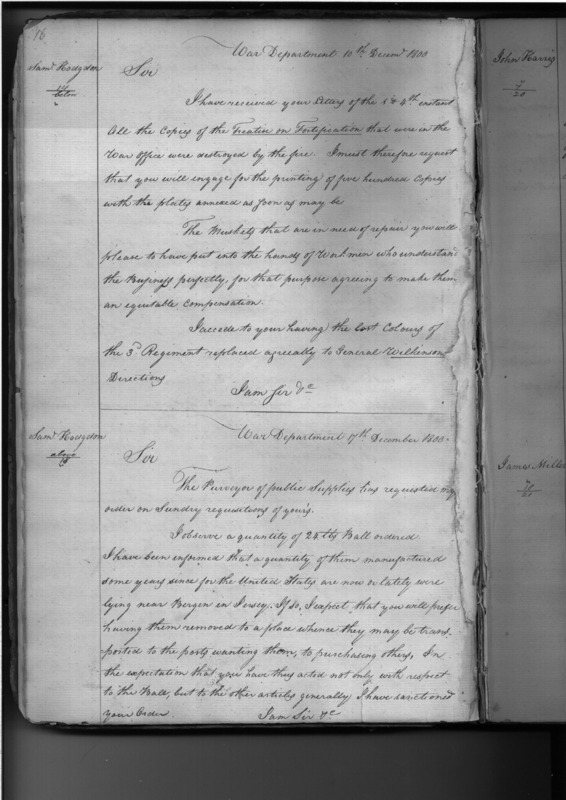 16
Saml Hodgdon
14
below
War Department 10th Decemr 1800
Sir
I have received your Letters of the 1 & 4th instant
All the Copies of the Treatise on Fortification that were in the
War Office were destroyed by the fire. I must therefore request
that you will engage for the printing of five hundred Copies
with the plates annexed as soon as may be
The Muskets that are in need of repair you will
please to have put into the hands of Workmen who understand
the Business perfectly, for that purpose agreeing to make them
an equitable compensation.
I accede to your having the lost Colours of
the 3d Regiment replaced agreeably to General Wilkinson
Directions
I am Sir &c
Saml Hodgdon
above
18
War Department 17th December 1800
Sir
The Purveyor of public Supplies has requested my
order on Sundry requisitions of yours.
I observe a quantity of 24 lb Ball ordered
I have been informed that a quantity of them manufactured
some years since for the United States are now or lately were
lying near Bergen in Jersey. If so, I expect that you will prefer
having them removed to a place whence they may be trans-
ported to the posts wanting them, to purchasing others. In
the expectation that you have thus acted not only with respect
to the Balls, but to the other articles generally I have sanctioned
your Order.
I am Sir &c
John Harris
20
James Mille
20